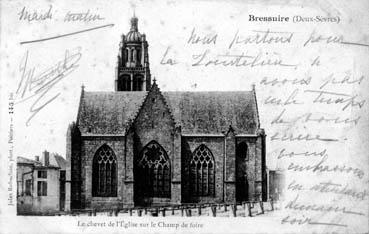 Mardi matin
Bressuire (Deux-Sèvres)
Nous partons pour
n'
avons pas
le temps
de vous
écrire
vous
embrassons
en attendant
demain
soir
Jules Robuchon, phot., Poitiers
Le chevet de l'Église sur le Champ de foire